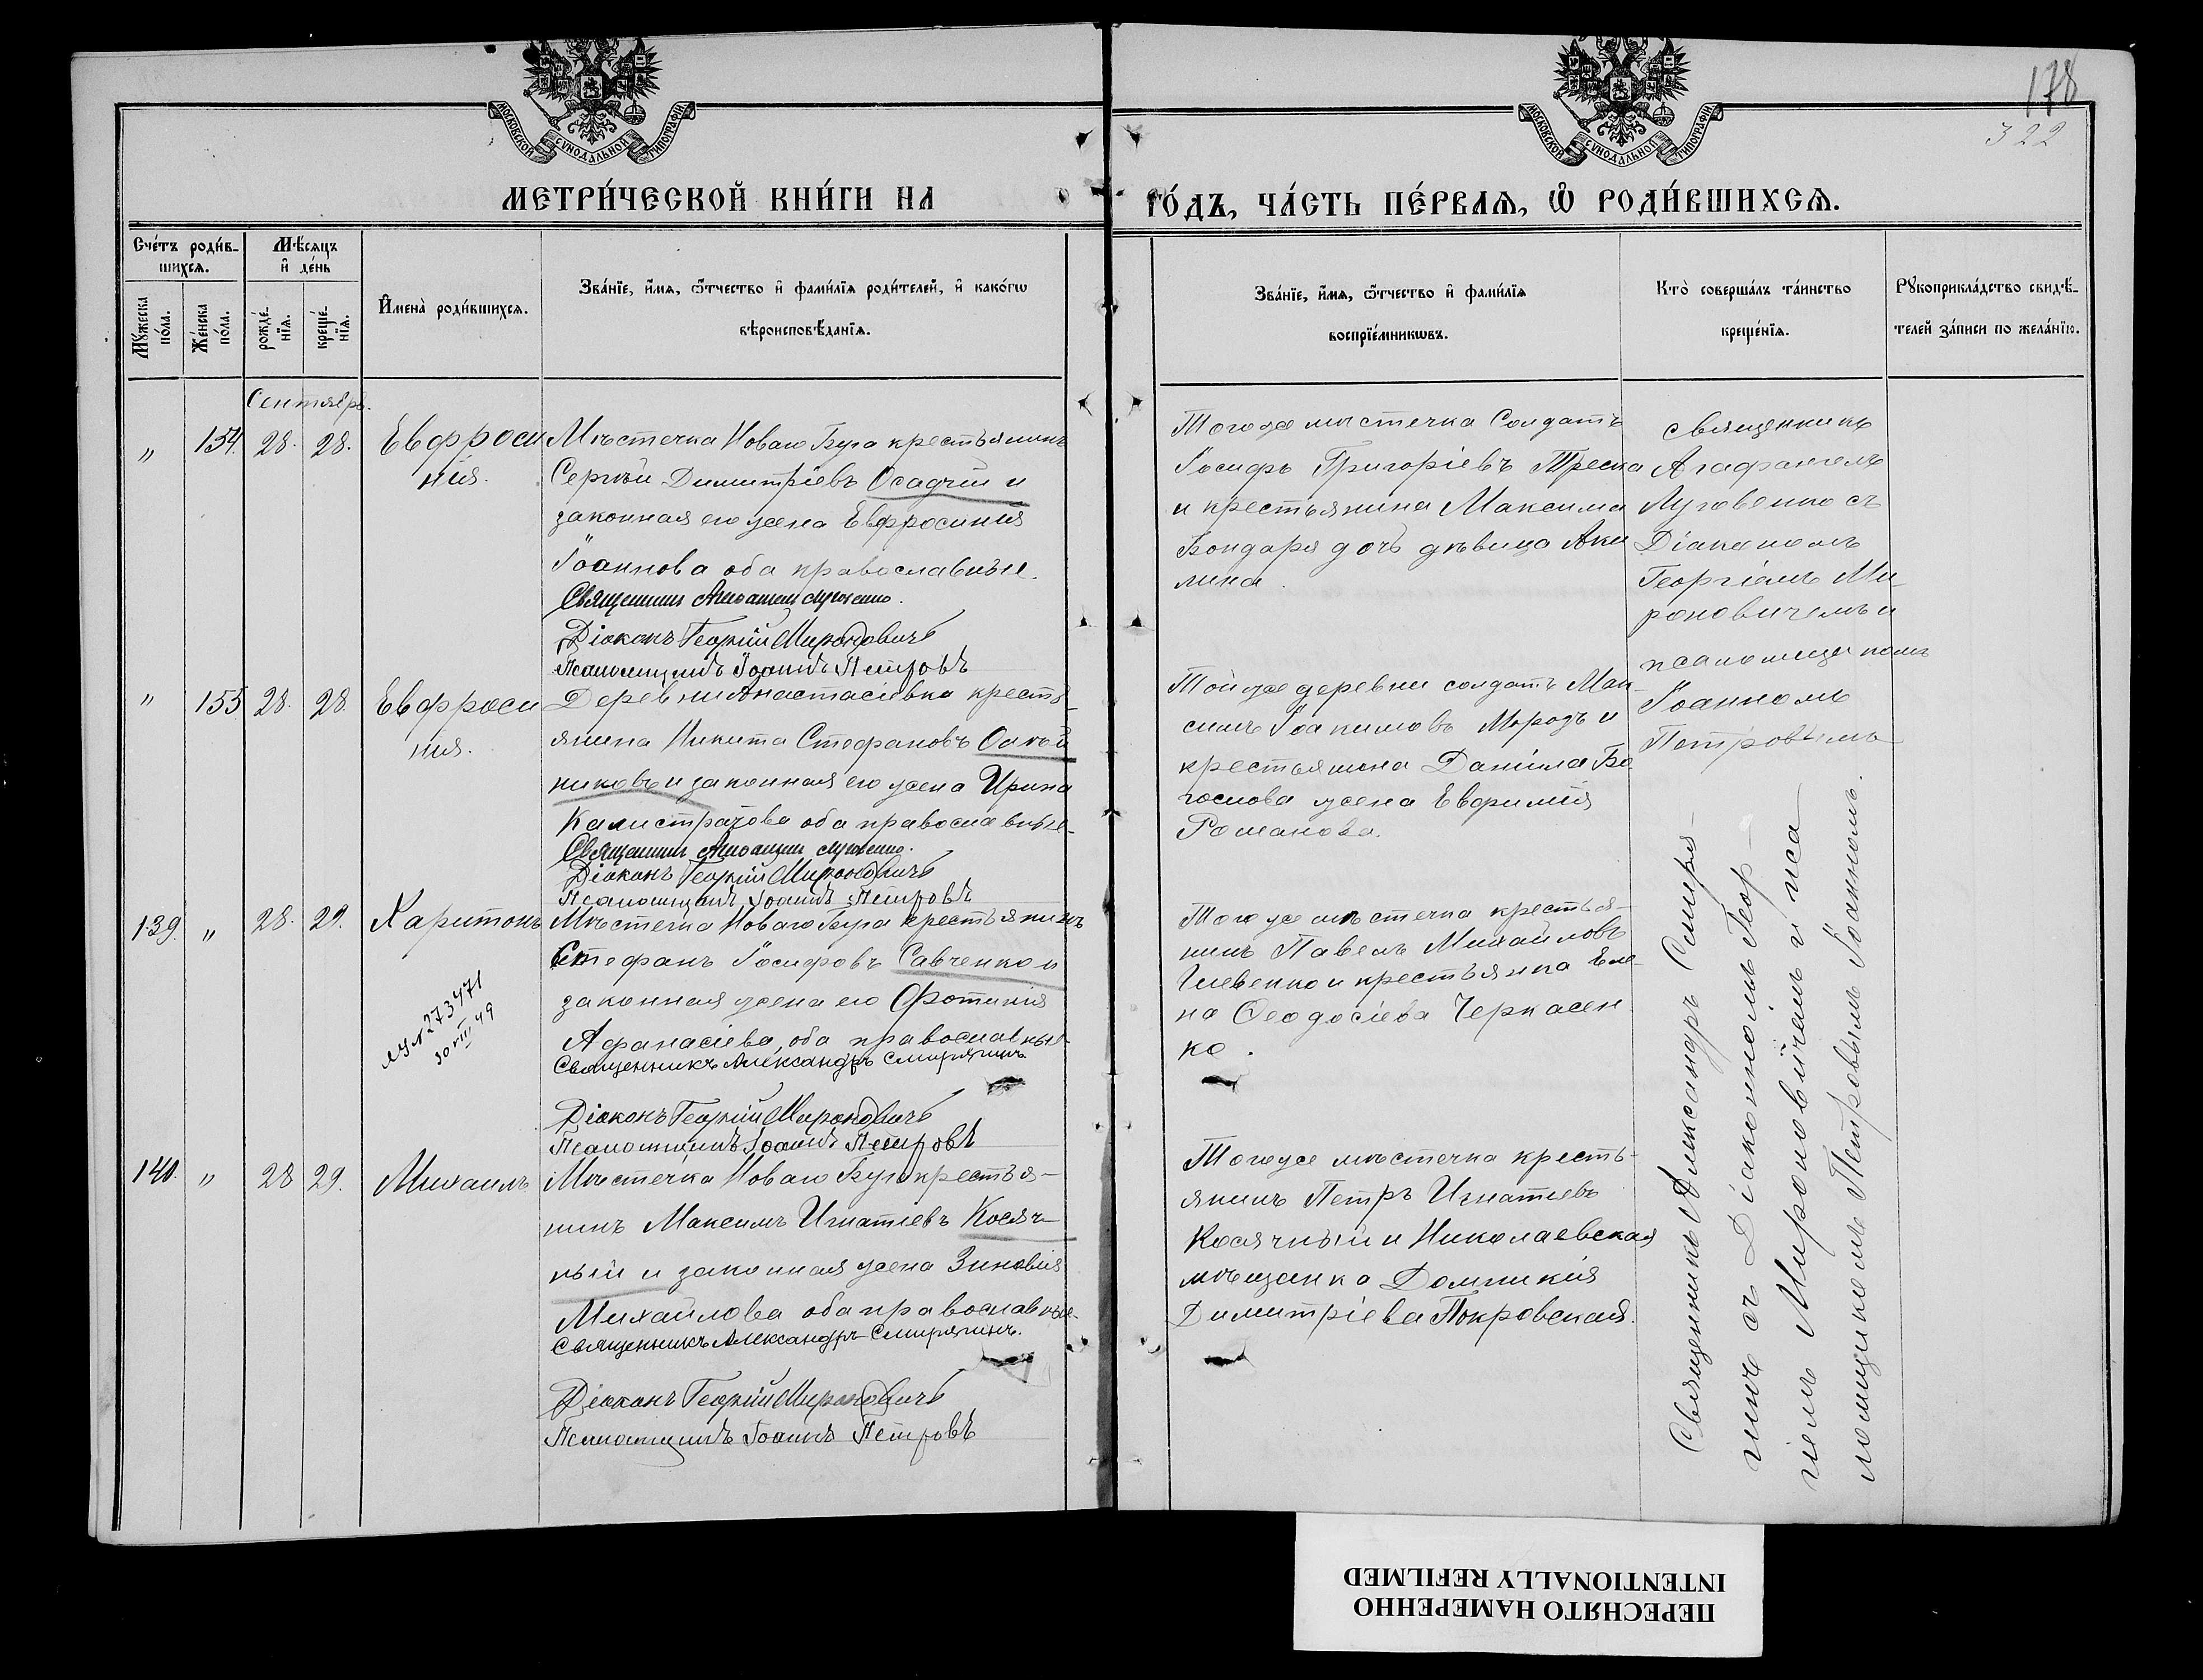 МОСКОВСКОЙ СѴНОДАЛЬНОЙ ТИПОГРАФІИ
МОСКОВСКОЙ СѴНОДАЛЬНОЙ ТИПОГРАФІИ
178
322
МЕТРИ́ЧЕСКОЙ КНИ́ГИ НА
ГО́ДЪ, ЧА́СТЬ ПЕ́РВАѦ, Ѡ҆ РОДИ́ВШИХСѦ.
Сче́тъ роди́в-
шихсѧ.
Мѣ́сѧцъ
и҆ де́нь
Мꙋ́жеска
по́ла.
Же́нска
по́ла.
рожде́-
нїѧ.
креще́-
нїѧ.
И҆мена̀ роди́вшихсѧ.
Зва́нїе, и҆́мѧ, ѻ҆́тчество и҆ фами́лїѧ роди́телей, и҆ како́гѡ
вѣроисповѣ́данїѧ.
Зва́нїе, и҆́мѧ, ѻ҆́тчество и҆ фами́лїѧ
воспрїе́мникѡвъ.
Кто̀ соверша́лъ та́инство
креще́нїѧ.
Рꙋкоприкла́дство свидѣ́-
телей за́писи по жела́нїю.
Сентябрь.
" 154. 28. 28. Евфроси
нія.
Мѣстечка Новаго Буга крестьянинъ
Сергѣй Димитріевъ Осадчій и
законная его жена Евфросинія
Іоаннова оба православные.
Священникъ Агафангелъ Луговенко.
Діаконъ Георгій Мироновичъ
Псаломщикъ Іоаннъ Петровъ
Тогоже мѣстечка Солдатъ
Іосифъ Григоріевъ
и крестьянина Максима
Бондаря дочь дѣвица Аки
лина.
Священникъ
Агафангелъ
Луговенко съ
Діакономъ
Георгіемъ Ми-
роновичемъ и
псаломщикомъ
Іоанномъ
Петровымъ
" 155. 28. 28. Евфроси
нія.
Деревни Анастасіевка кресть-
янина Никита Стефановъ
никовъ и законная его жена Ирина
Калистратова оба православные.
Священникъ Агафангелъ Луговенко.
Діаконъ Георгій Мироновичъ
Псаломщикъ Іоаннъ Петровъ
Тойже деревни солдатъ Мак-
симъ Іоакимовъ Морозъ и
крестьянина Даніила Бо
гослова жена Евфимія
Романова.
139. " 28. 29. Харитонъ
№ 273471
30 VIII 49
Мѣстечка Новаго Буга крестьянинъ
Стефанъ Іосифовъ Савченко и
законная жена его Фотинія
Афанасіева, оба православные.
Священникъ Александръ Смирягинъ
Діаконъ Георгій Мироновичъ
Псаломщикъ Іоаннъ Петровъ
Тогоже мѣстечка крестья-
нинъ Павелъ Михайловъ
и крестьянка Еле-
на Феодосіева Черкасен
ко.
140. " 28 29. Михаилъ
Мѣстечка Новаго Буга крестья-
нинъ Максимъ Игнатіевъ Косяч-
ный и законная жена Зиновія
Михайлова оба православные.
Священникъ Александръ Смирягинъ.
Діаконъ Георгій Мироновичъ
Псаломщикъ Іоаннъ Петровъ
Тогоже мѣстечка кресть-
янинъ Петръ Игнатіевъ
Косячный и Николаевская
мѣщанка Домникія
Димитріева Покровская.
Священникъ Александръ Смиря-
гинъ съ Діакономъ Геор-
гіемъ Мироновичемъ и пса
ломщикомъ Петровымъ Іоанномъ.
ПЕРЕСНЯТО НАМЕРЕННО
INTENTIONALLY REFILMED